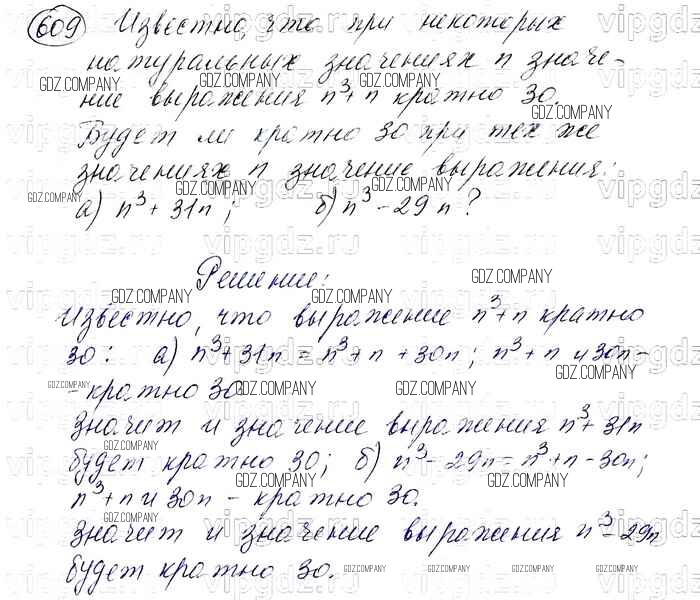 609 Известно, что при некоторых
натуральных значениях n значе-
ние выражения n³+n кратно 30.
Будет ли кратно 30 при тех же
значениях n значение выражения:
а) n³+31n; б) n³-29n?
Решение:
Известно, что выражение n³+n кратно
30: а) n³+31n = n³+n+30n; n³+n и 30n-
- кратно 30.
Значит и значение выражения n³+31n
будет кратно 30; б) n³-29n = n³+n-30n;
n³+n и 30n - кратно 30.
Значит и значение выражения n³-29n
будет кратно 30.
GDZ.COMPANY
vipgdz.ru